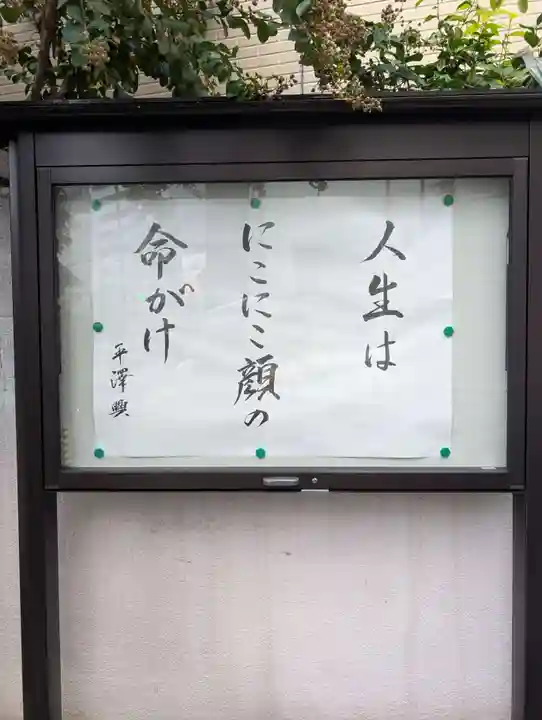 人生は
にこにこ顔の
命がけ
平澤興